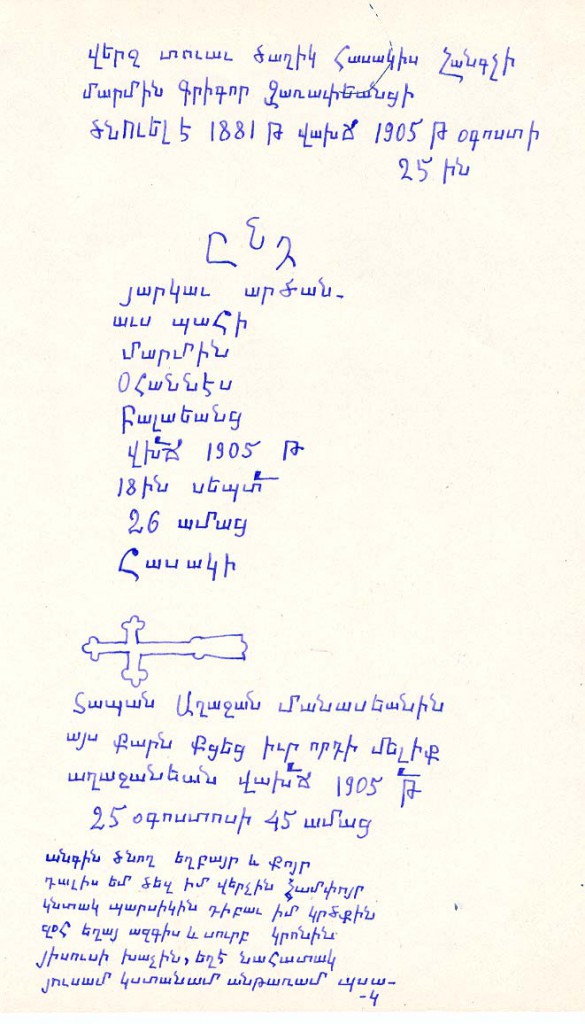 վերջ տուաւ ծաղիկ հասակիս հանգչի
մարմին Գրիգոր Զառափեանցի
ծնուել է 1881 թ վախճ 1905 թ օգոստի
25 ին
ԸՆԴ
յարկաւ արձան-
աւս պահի
մարմին
Օհաննէս
բալաեանց
վխճ 1905 թ
18ին սեպտ
26 ամաց
Հասակի
Տապան Աղաջան մանասեանին
այս քարն քցեց իւր որդի մելիք
աղաջանեան վախճ 1905 թ
25 օգոստոսի 45 ամաց
անգին ծնող եղբայր և քոյր
դալիս եմ ձեզ իմ վերջին համփոյր
կնտակ պարսիկին դիբաւ իմ կրծքին
զօհ եղայ ազգիս և սուրբ կրօնին
յիսուսի խաչին, եղէ նահատակ
յուսամ կստանամ անթառամ պսա-
-կ